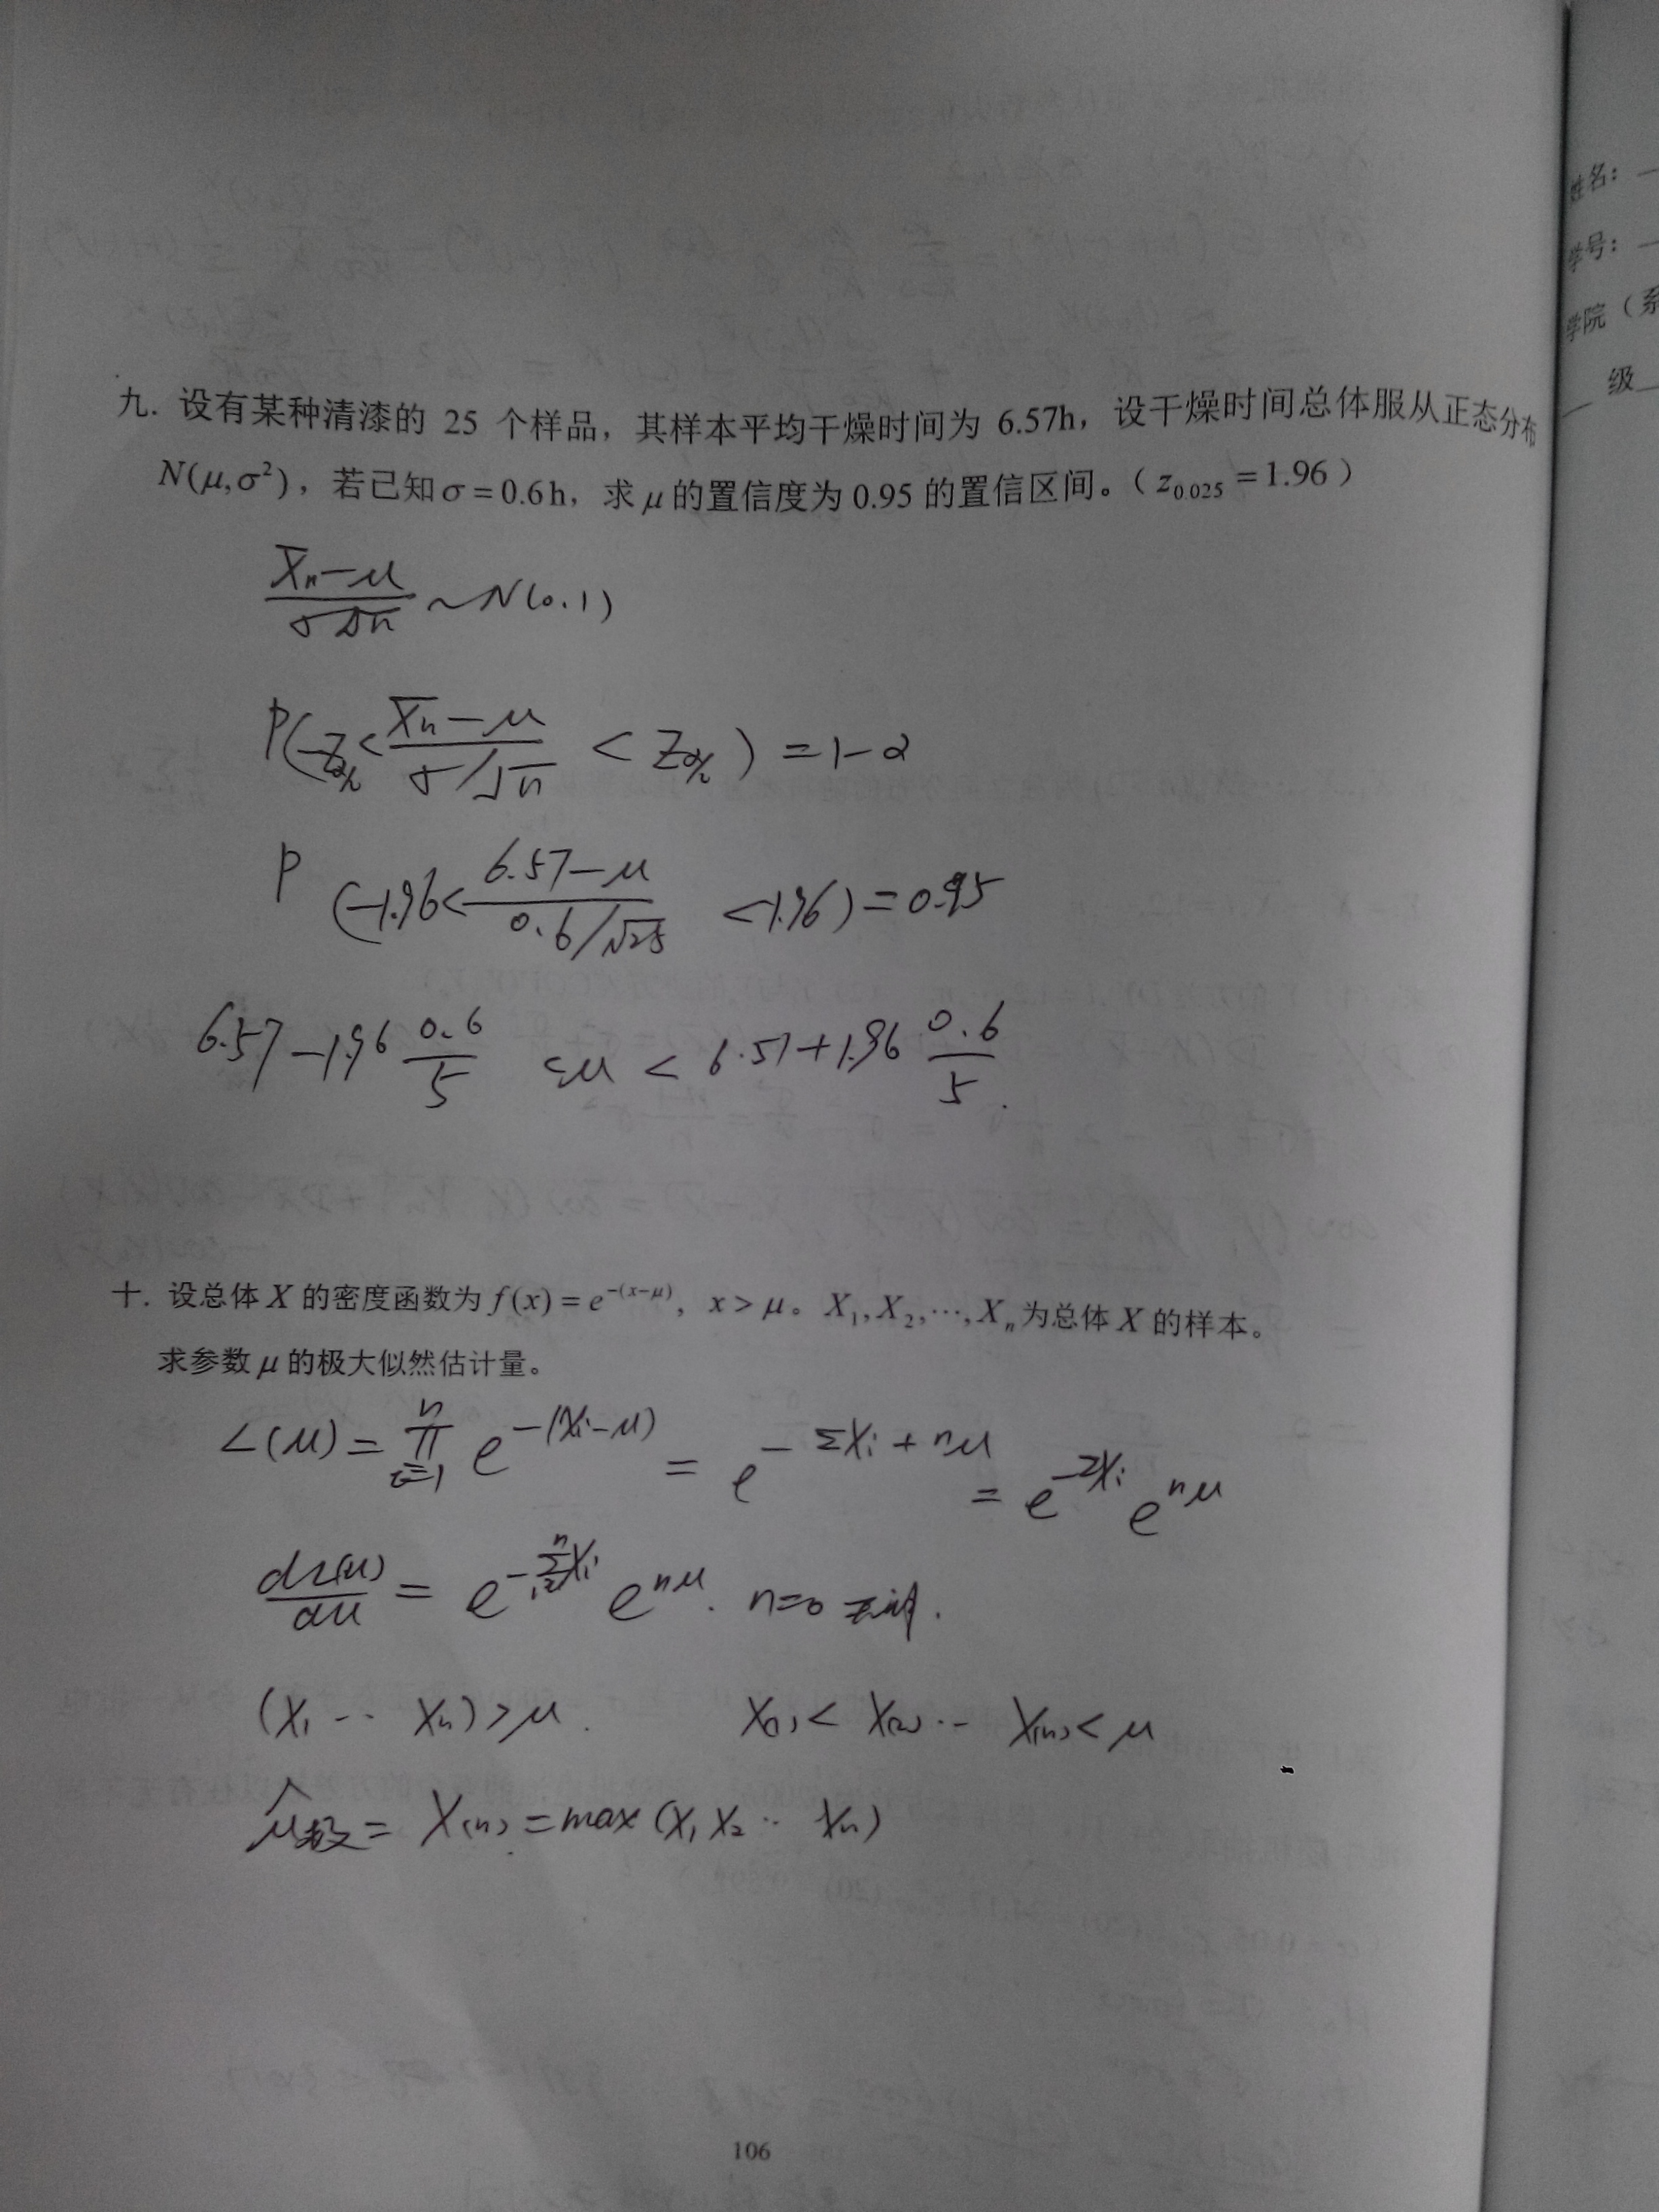 九. 设有某种清漆的 25 个样品，其样本平均干燥时间为 6.57h，设干燥时间总体服从正态分布
N(μ,σ²)，若已知σ=0.6h，求μ的置信度为0.95的置信区间。（z₀.₀₂₅=1.96）
(X̄n-μ)/(σ/√n) ~N(0.1)
P(-Zα/2<(X̄n-μ)/(σ/√n) < Zα/2) =1-α
P (-1.96<(6.57-μ)/(0.6/√25) <1.96)=0.95
6.57-1.96 0.6/5 <μ < 6.57+1.96 0.6/5.
十. 设总体X的密度函数为f(x)=e^{-(x-μ)}，x>μ。X₁,X₂,⋯,Xₙ为总体X的样本。
求参数μ的极大似然估计量。
L(μ)=∏_{i=1}^{n} e^{-(Xi-μ)} = e^{-ΣXi+nμ} = e^{-ΣXi} e^{nμ}
dL(μ)/dμ = e^{-Σ_{i=1}^{n}Xi} e^{nμ}. n=0
(X₁ -- Xn)>μ. X(1)< X(2) -- X(n)<μ
μ̂极= X(n)=max (X₁ X₂ ·· Xn)
106
姓名：
学号：
学院（系
级